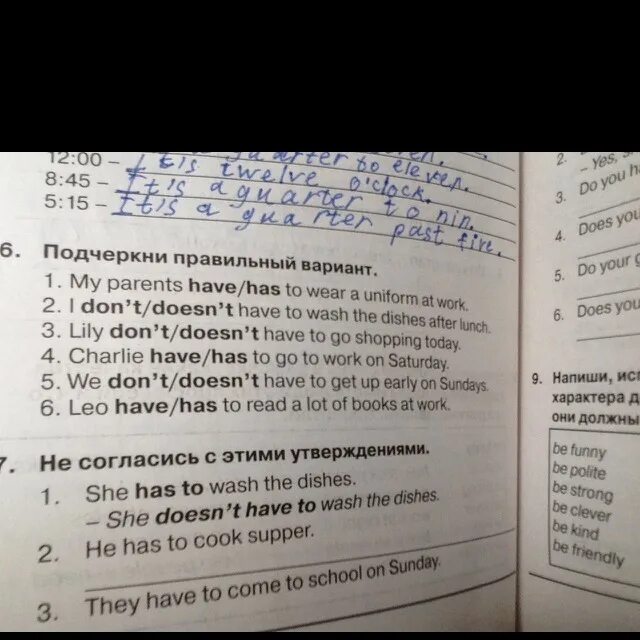 quarter to eleven.
12:00 – It is twelve o'clock.
8:45 – It is a quarter to nin.
5:15 – It is a quarter past five.
6. Подчеркни правильный вариант.
1. My parents have/has to wear a uniform at work.
2. I don't/doesn't have to wash the dishes after lunch.
3. Lily don't/doesn't have to go shopping today.
4. Charlie have/has to go to work on Saturday.
5. We don't/doesn't have to get up early on Sundays.
6. Leo have/has to read a lot of books at work.
7. Не согласись с этими утверждениями.
1. She has to wash the dishes.
– She doesn't have to wash the dishes.
2. He has to cook supper.
3. They have to come to school on Sunday.
2.
– Yes,
3. Do you
4. Does you
5. Do your
6. Does you
9. Напиши,
характера
они должны
be funny
be polite
be strong
be clever
be kind
be friendly